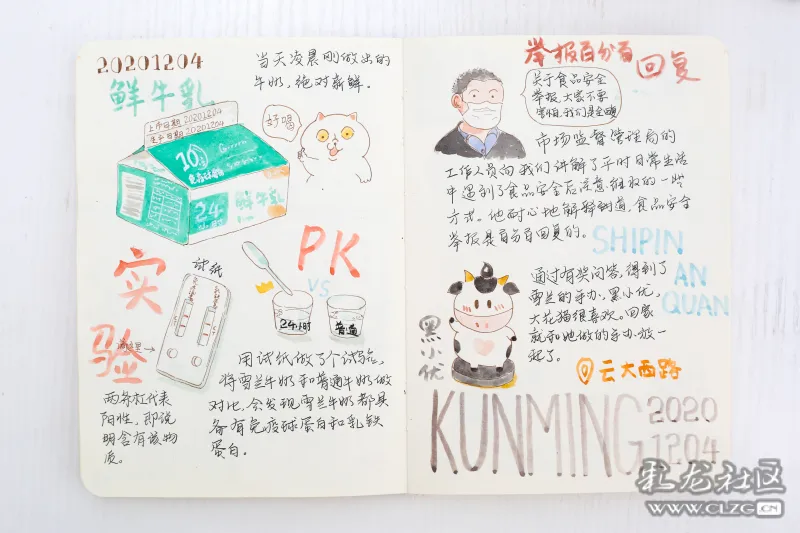 20201204
鲜牛乳
当天凌晨刚做出的
牛奶,绝对新鲜.
好喝
上市日期 20201204
生产日期 20201204
10
24
鲜牛乳
实
验
试纸
PK
VS
24小时
普通
两条杠代表
阳性,即说
明含有该物
质。
用试纸做了个试验,
将雪兰牛奶和普通牛奶做
对比,会发现雪兰牛奶都具
备有免疫球蛋白和乳铁
蛋白.
举报百分百
回复
关于食品安全
举报,大家不要
害怕,我们是全
市场监督管理局的
工作人员向我们讲解了平时日常生活
中遇到了食品安全后该采取的一些
方式。他耐心地解释到道,食品安全
举报是百分百回复的.
SHIPIN
AN
QUAN
通过有奖问答,得到了
雪兰的手办,黑小优,
大花猫很喜欢。回家
就和她做的手办放一
起了。
黑小优
云大西路
KUNMING
2020
1204
乳龙社区
WWW.CLZG.CN